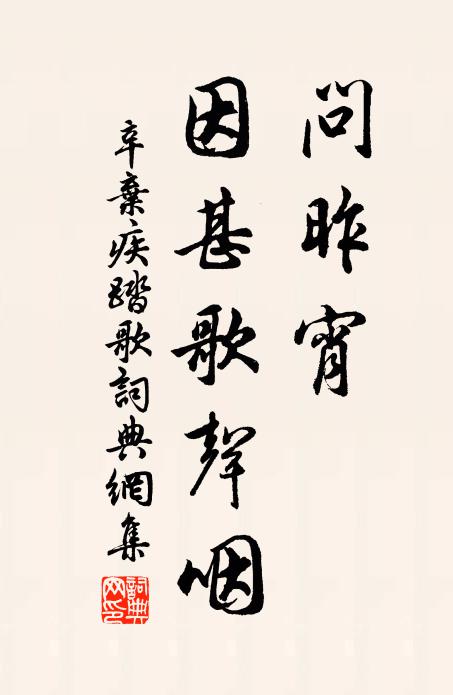 問昨宵
因甚歌聲咽
辛棄疾踏歌詞典網集
詞典網印